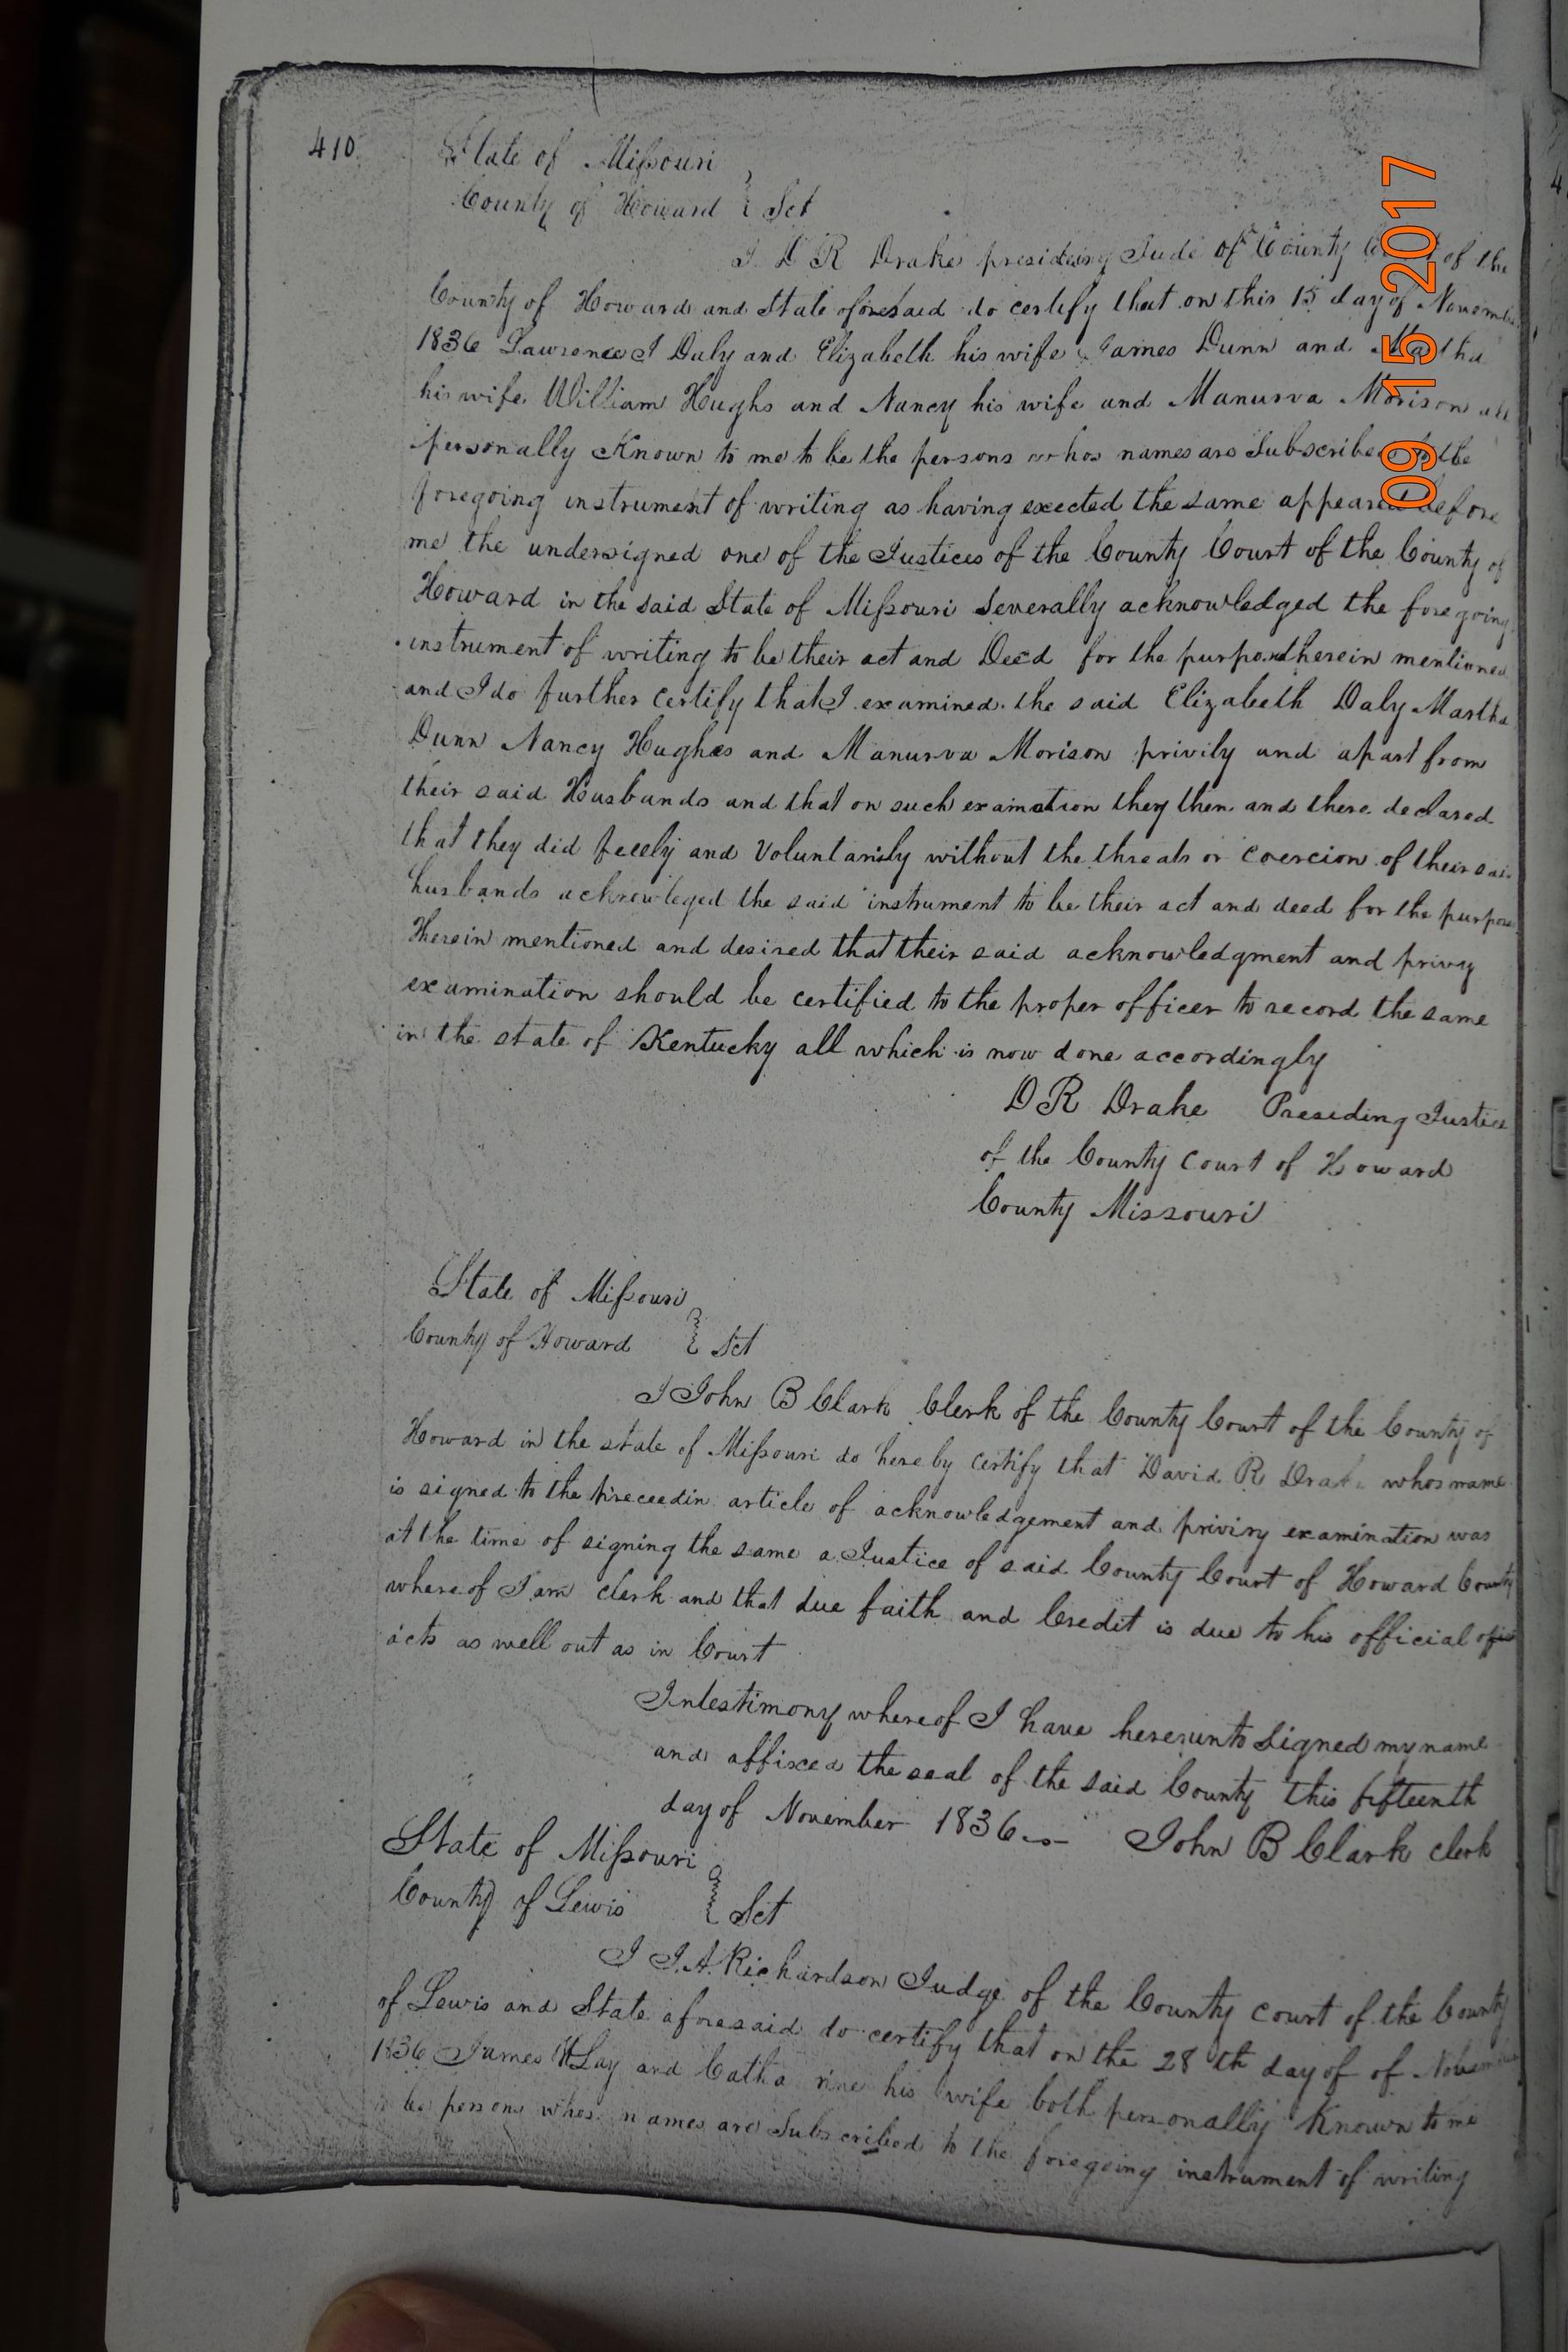 410
State of Missouri
County of Howard } Sct
I D R Drake presiding Jude of County of the
County of Howard and State aforesaid do certify that on this 15 day of Novembe
1836 Lawrence J Daly and Elizabeth his wife James Dunn and Martha
his wife William Hughs and Nancy his wife and Manurva Morison all
personally Known to me to be the persons whos names are Subscribed to the
foregoing instrument of writing as having exected the same appeared before
me the undersigned one of the Justices of the County Court of the County of
Howard in the said State of Missouri Severally acknowledged the foregoing
instrument of writing to be their act and Deed for the purposed therein mentioned
and I do further certify that I examined the said Elizabeth Daly Martha
Dunn Nancy Hughes and Manurva Morison privily and apart from
their said Husbands and that on such examation they then and there declared
that they did feeely and Voluntarily without the threats or coercion of their sai
husbands acknowleged the said instrument to be their act and deed for the purpose
Therein mentioned and desired that their said acknowledgment and privy
examination should be certified to the proper officer to record the same
in the state of Kentucky all which is now done accordingly
D R Drake Preseding Justice
of the County Court of Howard
County Missouri
State of Missouri
County of Howard } Sct
I John B Clark Clerk of the County Court of the County of
Howard in the state of Missouri do hereby certify that David R Drake whos name
is signed to the preceedin article of acknowledgement and priviry examination was
at the time of signing the same a Justice of said County Court of Howard County
whereof I am clerk and that due faith and Credit is due to his official
acts as well out as in Court
In testimony whereof I have hereunto Signed my name
and affixed the seal of the said County this fifteenth
day of November 1836 John B Clark clerk
State of Missouri
County of Lewis } Sct
I J.A. Richardson Judge of the County court of the County
of Lewis and State aforesaid do certify that on the 28th day of of November
1836 James Lay and Catha rine his wife both personally Known to me
to be persons whos names are Subscribed to the foregoing instrument of writing
09 15 2017